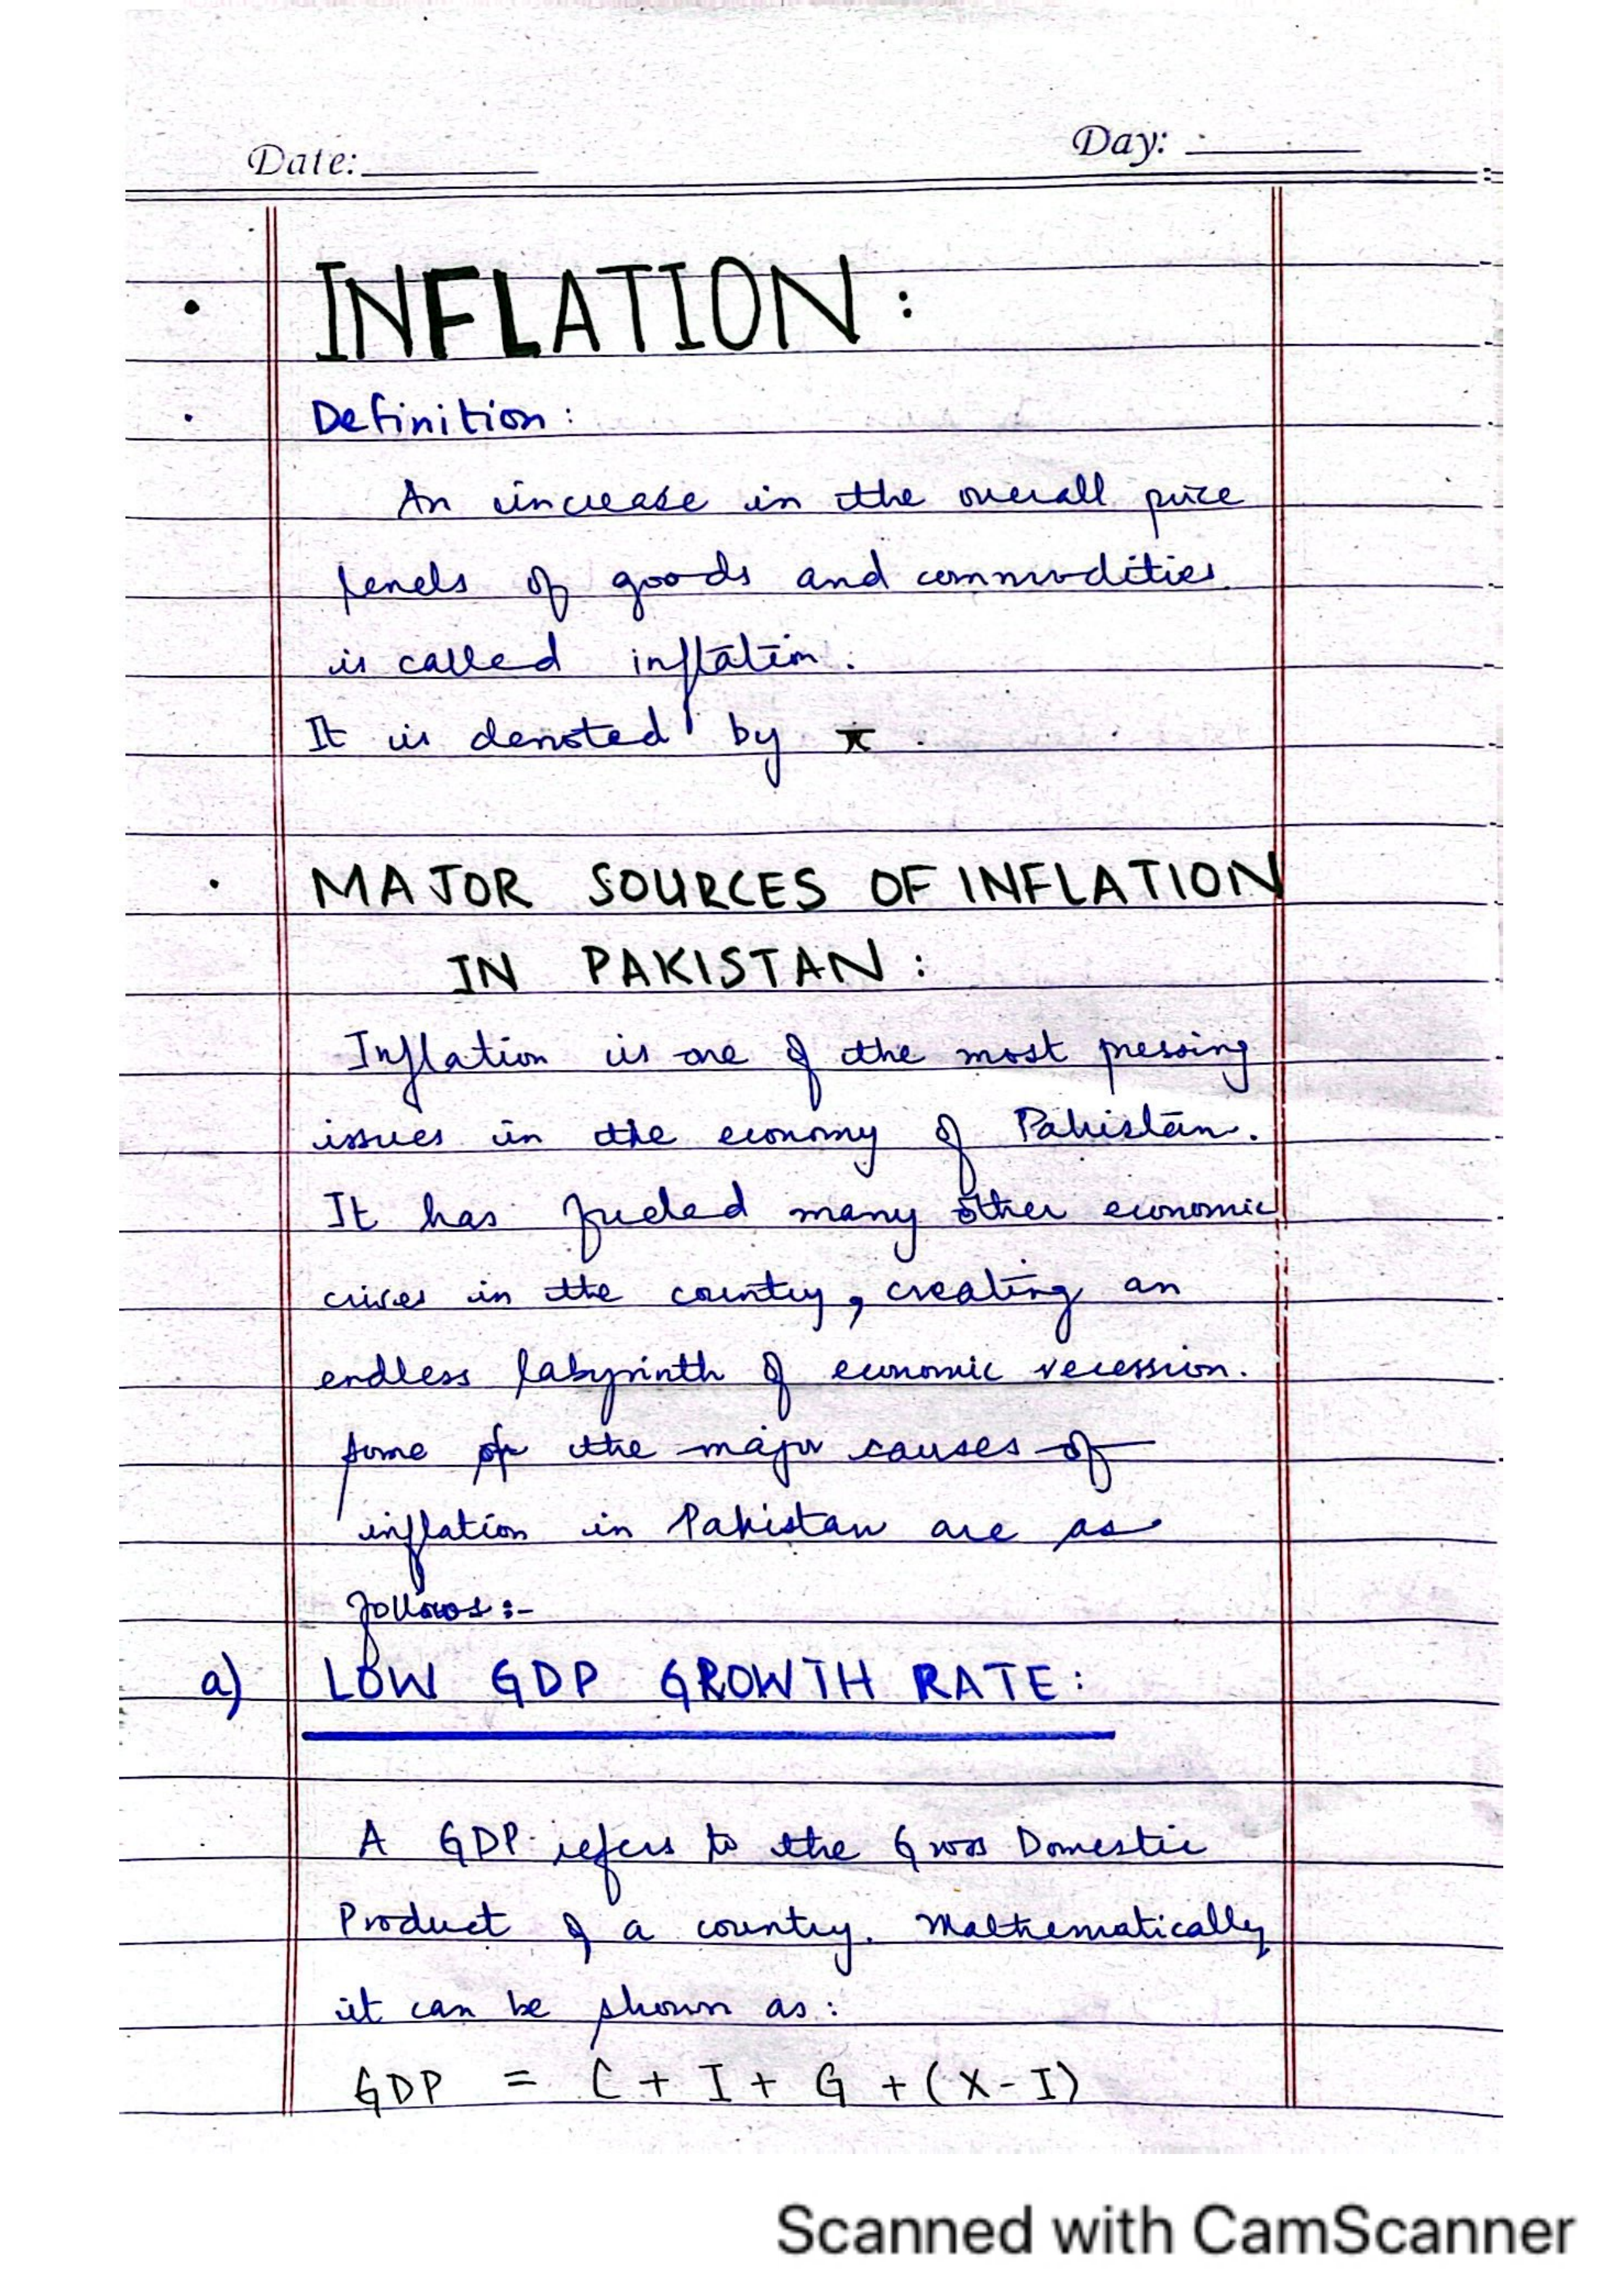 Date:
Day:
• INFLATION :
• Definition :
An increase in the overall price
levels of goods and commodities
is called inflation.
It is denoted by π .
• MAJOR SOURCES OF INFLATION
IN PAKISTAN :
Inflation is one of the most pressing
issues in the economy of Pakistan.
It has fueled many other economic
crises in the country, creating an
endless labyrinth of economic recession.
Some of the major causes of
inflation in Pakistan are as
follows :-
a) LOW GDP GROWTH RATE :
A GDP refers to the Gross Domestic
Product of a country. Mathematically
it can be shown as :
GDP = C + I + G + (X - I)
Scanned with CamScanner